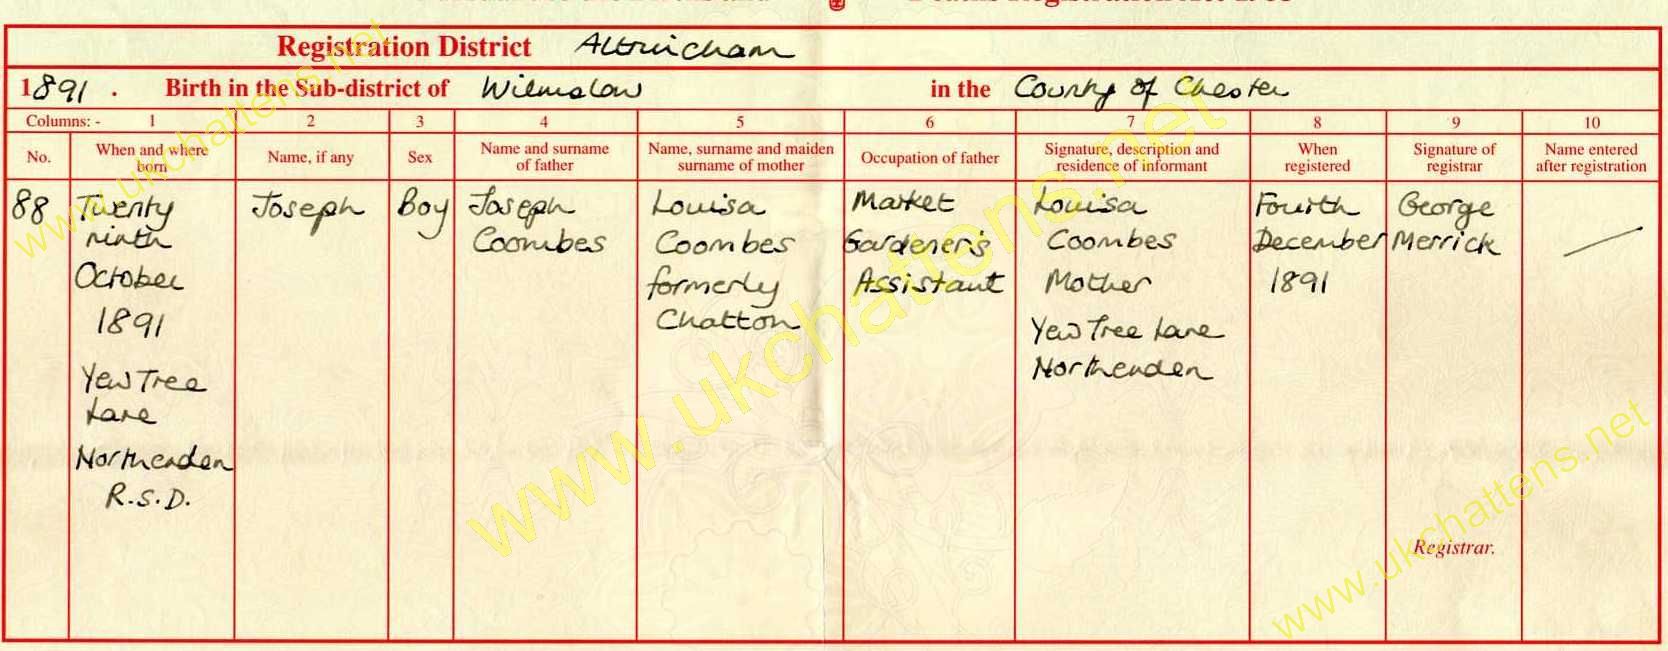 Registration District Altrincham
1891. Birth in the Sub-district of Wilmslow in the County of Chester
Columns: - 1 2 3 4 5 6 7 8 9 10
No.
When and where
born
Name, if any
Sex
Name and surname
of father
Name, surname and maiden
surname of mother
Occupation of father
Signature, description and
residence of informant
When
registered
Signature of
registrar
Name entered
after registration
88
Twenty
ninth
October
1891
Yew Tree
Lane
Northenden
R.S.D.
Joseph
Boy
Joseph
Coombes
Louisa
Coombes
formerly
Chatton
Market
Gardener's
Assistant
Louisa
Coombes
Mother
Yew Tree Lane
Northenden
Fourth
December
1891
George
Merrick
Registrar.
www.ukchattens.net
www.ukchattens.net
www.ukchattens.net